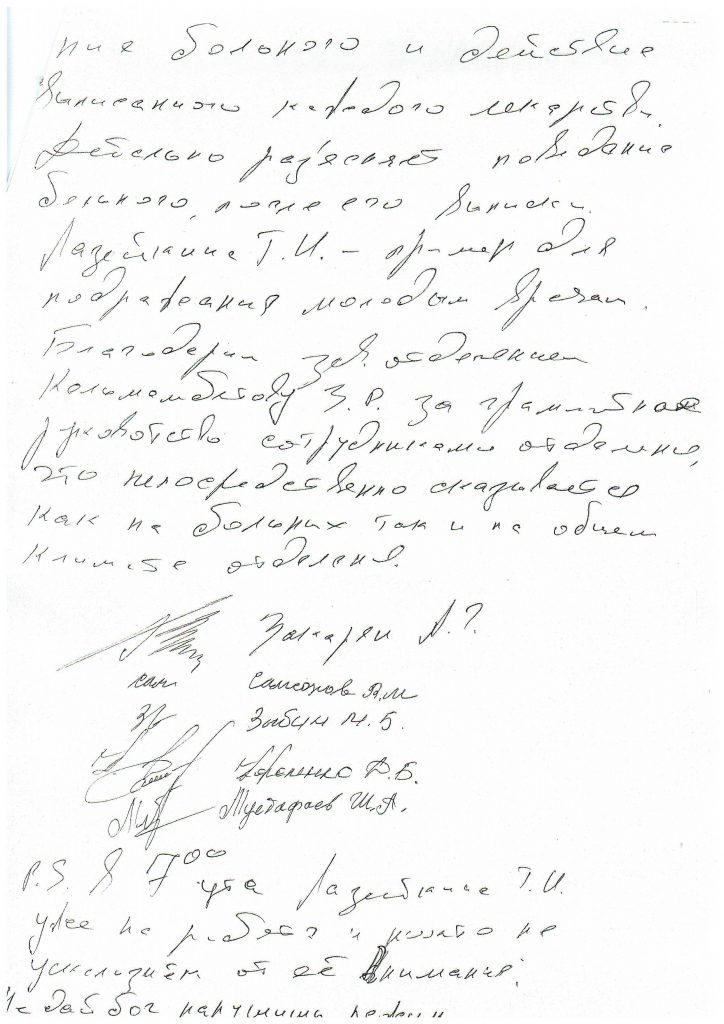 ние больного и действие
выписанного каждого лекарства.
Детально раз'ясняет поведение
больного, после его выписки.
Лазейкине Т.И. – пример для
подражания молодым врачам.
Благодарим зав. отделением
З.Р. за грамотное
руководство сотрудниками отделения,
это непосредственно сказывается
как на больних так и на общем
климате отделения.
Закарян А.Г.
сам Самсонов В.М
Зыбин М.Б.
Д.Б.
Мустафаев Ш.А.
P.S. В 7⁰⁰ утра Лазейкине Т.И.
уже на работе и никто не
ускользнём от её внимания;
Не дай бог нарушишь режим